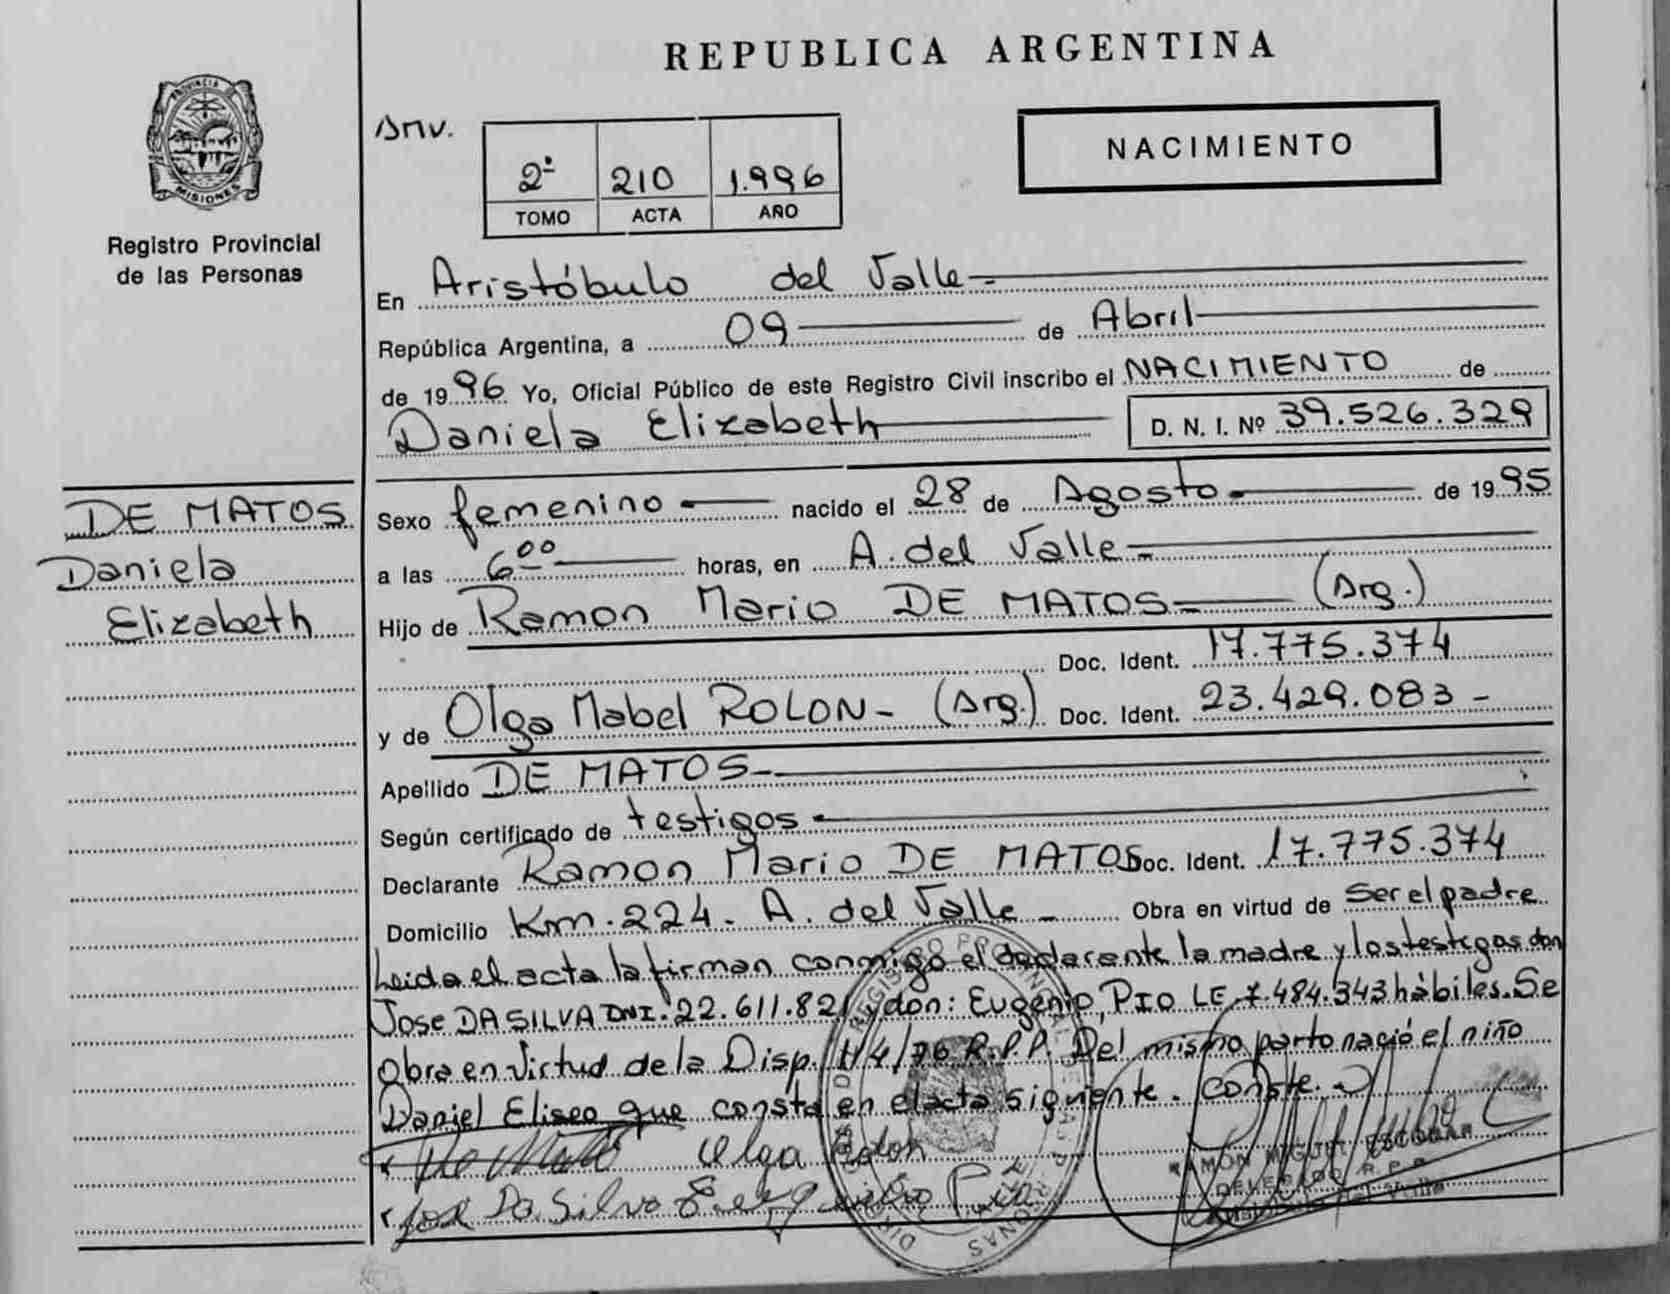 REPUBLICA ARGENTINA
PROVINCIA DE
MISIONES
Registro Provincial
de las Personas
NACIMIENTO
2º 210 1.996
TOMO ACTA AÑO
En Aristóbulo del Valle
República Argentina, a 09 de Abril
de 1996 Yo, Oficial Público de este Registro Civil inscribo el NACIMIENTO de
Daniela Elizabeth D. N. I. Nº 39.526.329
DE MATOS
Daniela
Elizabeth
Sexo femenino nacido el 28 de Agosto de 1995
a las 6 00 horas, en A. del Valle
Hijo de Ramon Mario DE MATOS (Arg.)
Doc. Ident. 17.775.374
y de Olga Mabel ROLON - (Arg.) Doc. Ident. 23.429.083 -
Apellido DE MATOS
Según certificado de testigos
Declarante Ramon Mario DE MATOS Doc. Ident. 17.775.374
Domicilio Km. 224. A. del Valle - Obra en virtud de Ser el padre
Leida el acta la firman conmigo el declarante la madre y los testigos don
Jose DA SILVA DNI. 22.611.821 y don: Eugenio, PIO LE 7.484.343 hábiles. Se
Obra en Virtud de la Disp. 14/76 R.P.P. Del mismo parto nació el niño
Daniel Eliseo que consta en el acta siguiente. Conste.
De Matos Olga Rolon
José Da Silva
RAMON MIGUEL ESCOBAR
DELEGADO R.P.P.